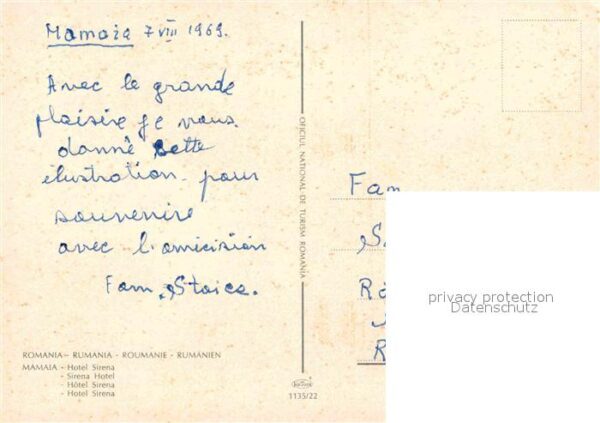 Mamaia 7 VIII 1969.
Avec le grande
plaisire je vous
donné cette
ilustration pour
souvenire
avec l'amicision
Fam. Staice.
ROMANIA - RUMANIA - ROUMANIE - RUMÄNIEN
MAMAIA - Hotel Sirena
- Sirena Hotel
- Hôtel Sirena
- Hotel Sirena
OFICIUL NATIONAL DE TURISM ROMANIA
1135/22
Fam
S.
R
privacy protection
Datenschutz